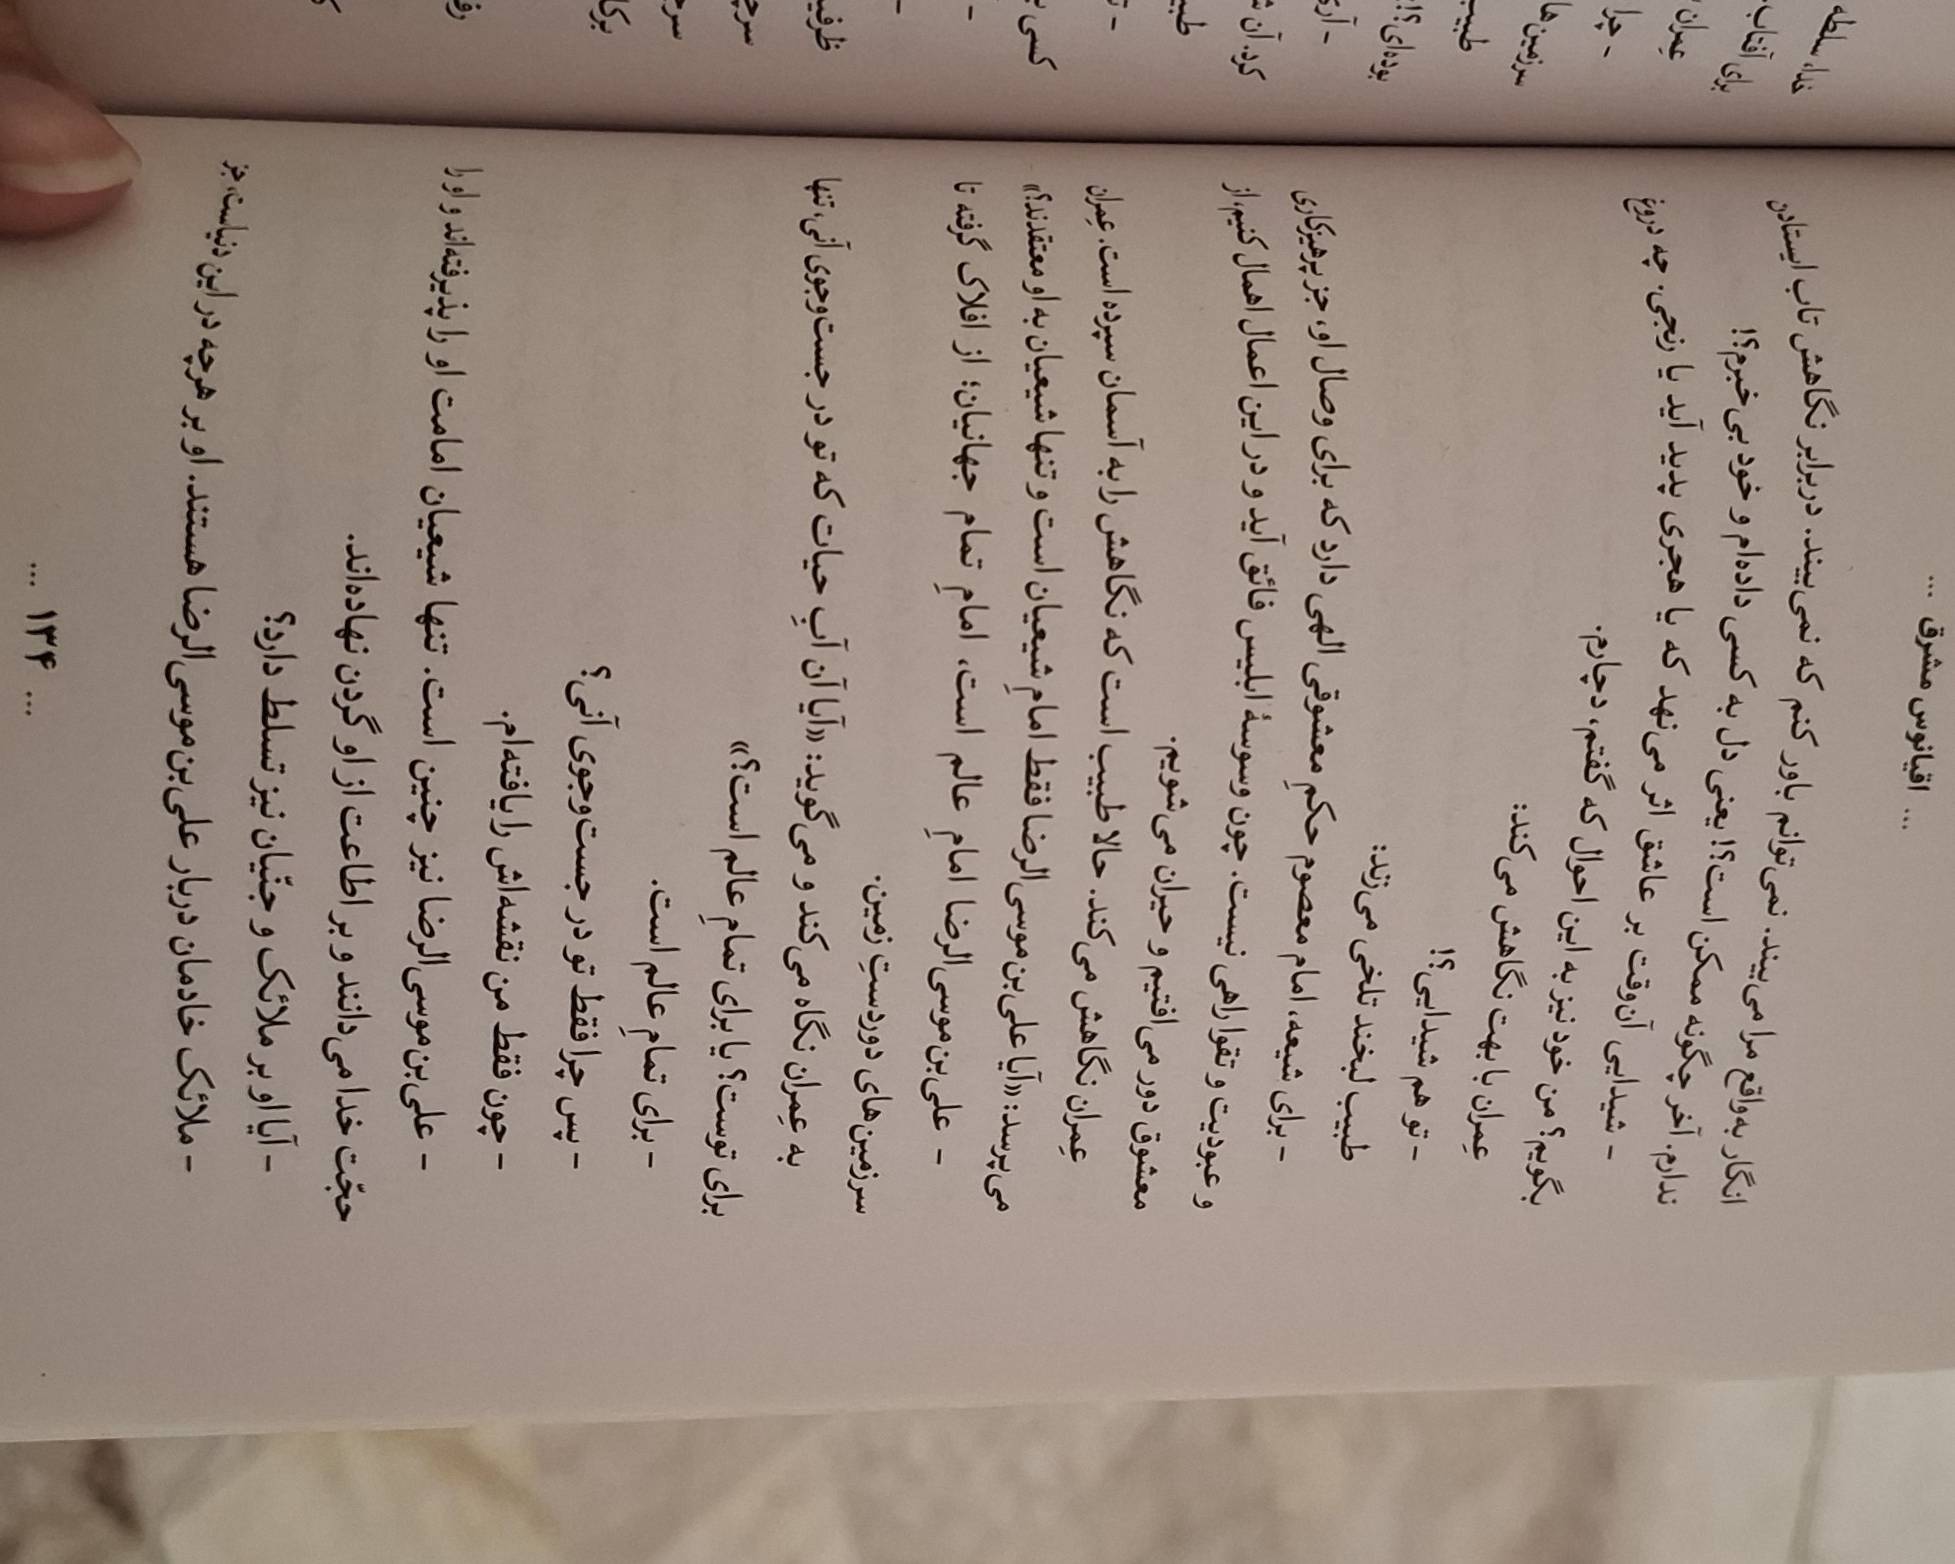 ... اقیانوس مشرق ...
انگار به‌واقع مرا می‌بیند. نمی‌توانم باور کنم که نمی‌بیند. در برابر نگاهش تاب ایستادن
ندارم. آخر چگونه ممکن است؟! یعنی دل به کسی داده‌ام و خود بی‌خبرم؟!
- شیدایی آن‌وقت بر عاشق اثر می‌نهد که یا هجری پدید آید یا رنجی. چه دروغ
بگویم؟ من خود نیز به این احوال که گفتم، دچارم.
عِمران با بهت نگاهش می‌کند:
- تو هم شیدایی؟!
طبیب لبخند تلخی می‌زند:
- برای شیعه، امام معصوم حکمِ معشوقی الهی دارد که برای وصال او، جز پرهیزکاری
و عبودیت و تقوا راهی نیست. چون وسوسهٔ ابلیس فائق آید و در این اعمال اهمال کنیم، از
معشوق دور می‌افتیم و حیران می‌شویم.
عِمران نگاهش می‌کند. حالا طبیب است که نگاهش را به آسمان سپرده است. عِمران
می‌پرسد: «آیا علی‌بن‌موسی‌الرضا فقط امامِ شیعیان است و تنها شیعیان به او معتقدند؟»
- علی‌بن‌موسی‌الرضا امامِ عالم است، امامِ تمام جهانیان؛ از افلاک گرفته تا
سرزمین‌های دوردستِ زمین.
به عِمران نگاه می‌کند و می‌گوید: «آیا آن آبِ حیات که تو در جست‌وجوی آنی، تنها
برای توست؟ یا برای تمامِ عالم است؟»
- برای تمامِ عالم است.
- پس چرا فقط تو در جست‌وجوی آنی؟
- چون فقط من نقشه‌اش را یافته‌ام.
- علی‌بن‌موسی‌الرضا نیز چنین است. تنها شیعیان امامت او را پذیرفته‌اند و او را
حجّت خدا می‌دانند و بر اطاعت از او گردن نهاده‌اند.
- آیا او بر ملائک و جنّیان نیز تسلط دارد؟
- ملائک خادمان دربار علی‌بن‌موسی‌الرضا هستند. او بر هرچه در این دنیاست، جز
... ۱۳۴ ...
خدا، سلطه
برای آفتاب
عِمران
- چرا
سرزمین‌ها
طبیب
بوده‌ای؟!
- آری
کرد. آن
کسی